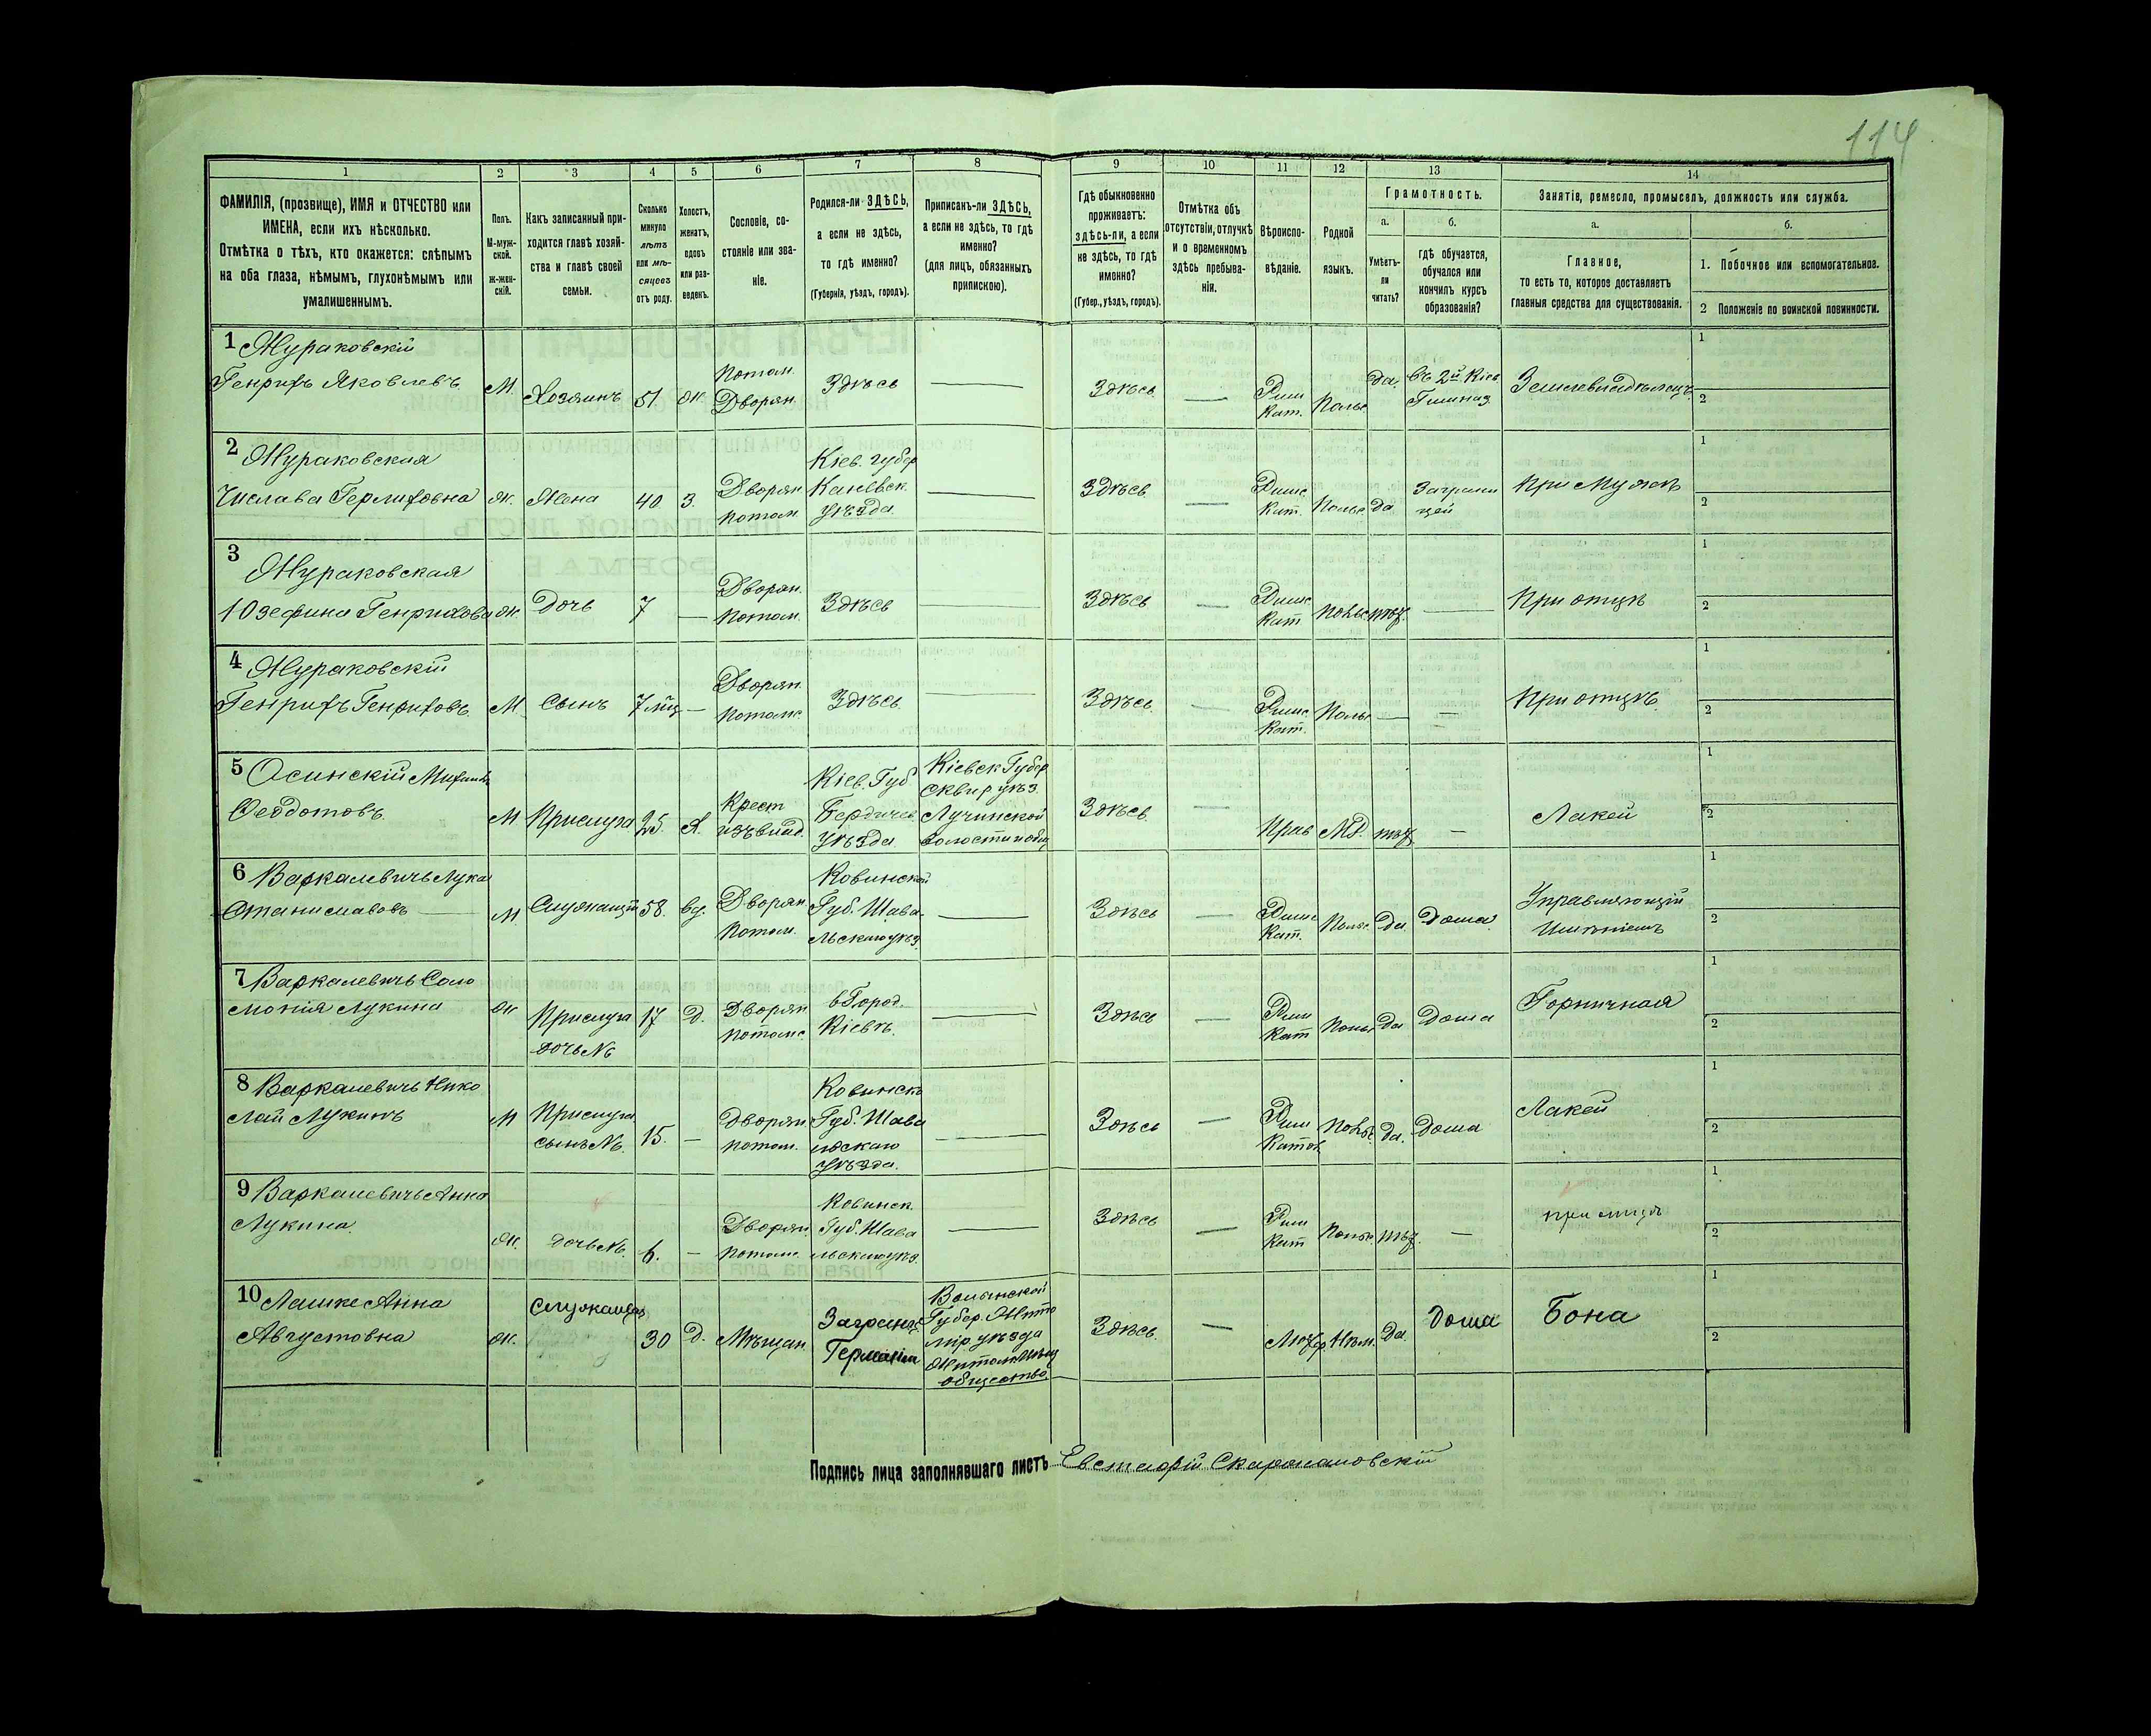 114
1
2
3
4
5
6
7
8
9
10
11
12
13
14
ФАМИЛІЯ, (прозвище), ИМЯ и ОТЧЕСТВО или
ИМЕНА, если ихъ нѣсколько.
Отмѣтка о тѣхъ, кто окажется: слѣпымъ
на оба глаза, нѣмымъ, глухонѣмымъ или
умалишеннымъ.
Полъ.
М-муж-
ской.
Ж-жен-
скій.
Какъ записанный при-
ходится главѣ хозяй-
ства и главѣ своей
семьи.
Сколько
минуло
лѣтъ
или мѣ-
сяцевъ
отъ роду.
Холостъ,
женатъ,
вдовъ
или раз-
веденъ.
Сословіе, со-
стояніе или зва-
ніе.
Родился-ли ЗДѢСЬ,
а если не здѣсь,
то гдѣ именно?
(Губернія, уѣздъ, городъ).
Приписанъ-ли ЗДѢСЬ,
а если не здѣсь, то гдѣ
именно?
(для лицъ, обязанныхъ
припискою).
Гдѣ обыкновенно
проживаетъ:
здѣсь-ли, а если
не здѣсь, то гдѣ
именно?
(Губер., уѣздъ, городъ).
Отмѣтка объ
отсутствіи, отлучкѣ
и о временномъ
здѣсь пребыва-
ніи.
Вѣроиспо-
вѣданіе.
Родной
языкъ.
Грамотность.
а.
б.
Умѣетъ-
ли
читать?
гдѣ обучается,
обучался или
кончилъ курсъ
образованія?
Занятіе, ремесло, промыселъ, должность или служба.
а.
б.
Главное,
то есть то, которое доставляетъ
главныя средства для существованія.
1. Побочное или вспомогательное.
2 Положеніе по воинской повинности.
1 Жураковскій
Генрихъ Яковлевъ
М.
Хозяинъ
51
Ж
Потом.
Дворян.
Здѣсь
Здѣсь
Рим
Кат.
Польс
да.
въ 2й Кіев
Гимназ.
Землевладѣлецъ
1
2
2 Жураковская
Ж.
Жена
40.
З.
Дворян
потом
Кіев. губер
Каневск.
уѣзда.
Здѣсь
Римс
Кат.
Польс
да
Заграни
цей
При Мужѣ
1
2
3 Жураковская
Юзефина Генрихова
Ж.
Дочь
7
Дворян.
потом.
Здѣсь
Здѣсь
Римс
Кат
польс
нѣт.
При отцѣ
1
2
4 Жураковскій
Генрихъ Генриховъ.
М
Сынъ
7 мѣц
Дворян.
потомс.
Здѣсь
Здѣсь
Римс
Кат.
Польс
При отцѣ.
1
2
5 Осинскій
Ѳеодотовъ
М
Прислуга
25.
Х.
Крест
Кіев. Губ
Бердичев
уѣзда
Кіевск Губер
Сквир уѣз.
Лучинской
волости
Здѣсь
Прав
М.Р.
нѣт
Лакей
1
2
6 Варкалевичъ Лука
Станиславовъ
М.
Служащій
58.
вд.
Дворян
потом.
Ковинской
Губ. Шаве
льскаго уѣз.
Здѣсь
Римс
Кат.
Польс.
Да
Дома
Управляющій
Имѣніемъ
1
2
7 Варкалевичъ Соло
монія Лукина
Ж
Прислуга
дочь №6
17
Д.
Дворян
потомс.
в Город.
Кіевѣ.
Здѣсь
Рим
Кат
Польс
Да
Дома
Горничная
1
2
8 Варкалевичъ Нико
лай Лукинъ
М
Прислуга
сынъ №6.
15.
Дворян.
потом.
Ковинско
Губ. Шаве
льскаго
уѣзда.
Здѣсь
Рим
Катол
Польс.
Да.
Дома
Лакей
1
2
9 Варкалевичъ Анна
Лукина.
Ж.
Дочь №6.
6.
Дворян.
потомс.
Ковинск.
Губ. Шаве
льскаго уѣз.
Здѣсь
Рим
Кат
Польс
нѣт.
при отцѣ
1
2
10 Лашке Анна
Августовна
Ж.
Служащая
30
Д.
Мѣщан.
Заграниц
Германіи
Волынской
Губер. Жито
мір. уѣзда
общество.
Здѣсь.
Лют
Нѣм.
Да.
Дома
Бона
1
2
Подпись лица заполнявшаго листъ Евстафій